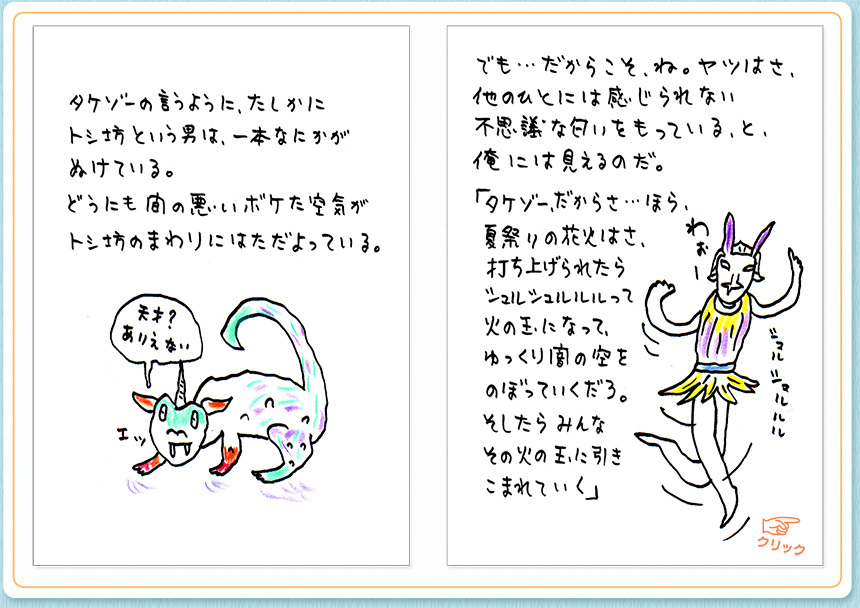 タケゾーの言うように、たしかに
トシ坊という男は、一本なにかが
ぬけている。
どうにも間の悪いボケた空気が
トシ坊のまわりにはただよっている。
天才?
ありえない
エッ
でも…だからこそ、ね。ヤツはさ、
他のひとには感じられない
不思議な匂いをもっている、と、
俺には見えるのだ。
「タケゾー、だからさ…ほら、
夏祭りの花火はさ、
打ち上げられたら
シュルシュルルルって
火の玉になって、
ゆっくり闇の空を
のぼっていくだろ。
そしたらみんな
その火の玉に引き
こまれていく」
わぉー
シュルシュルルル
クリック